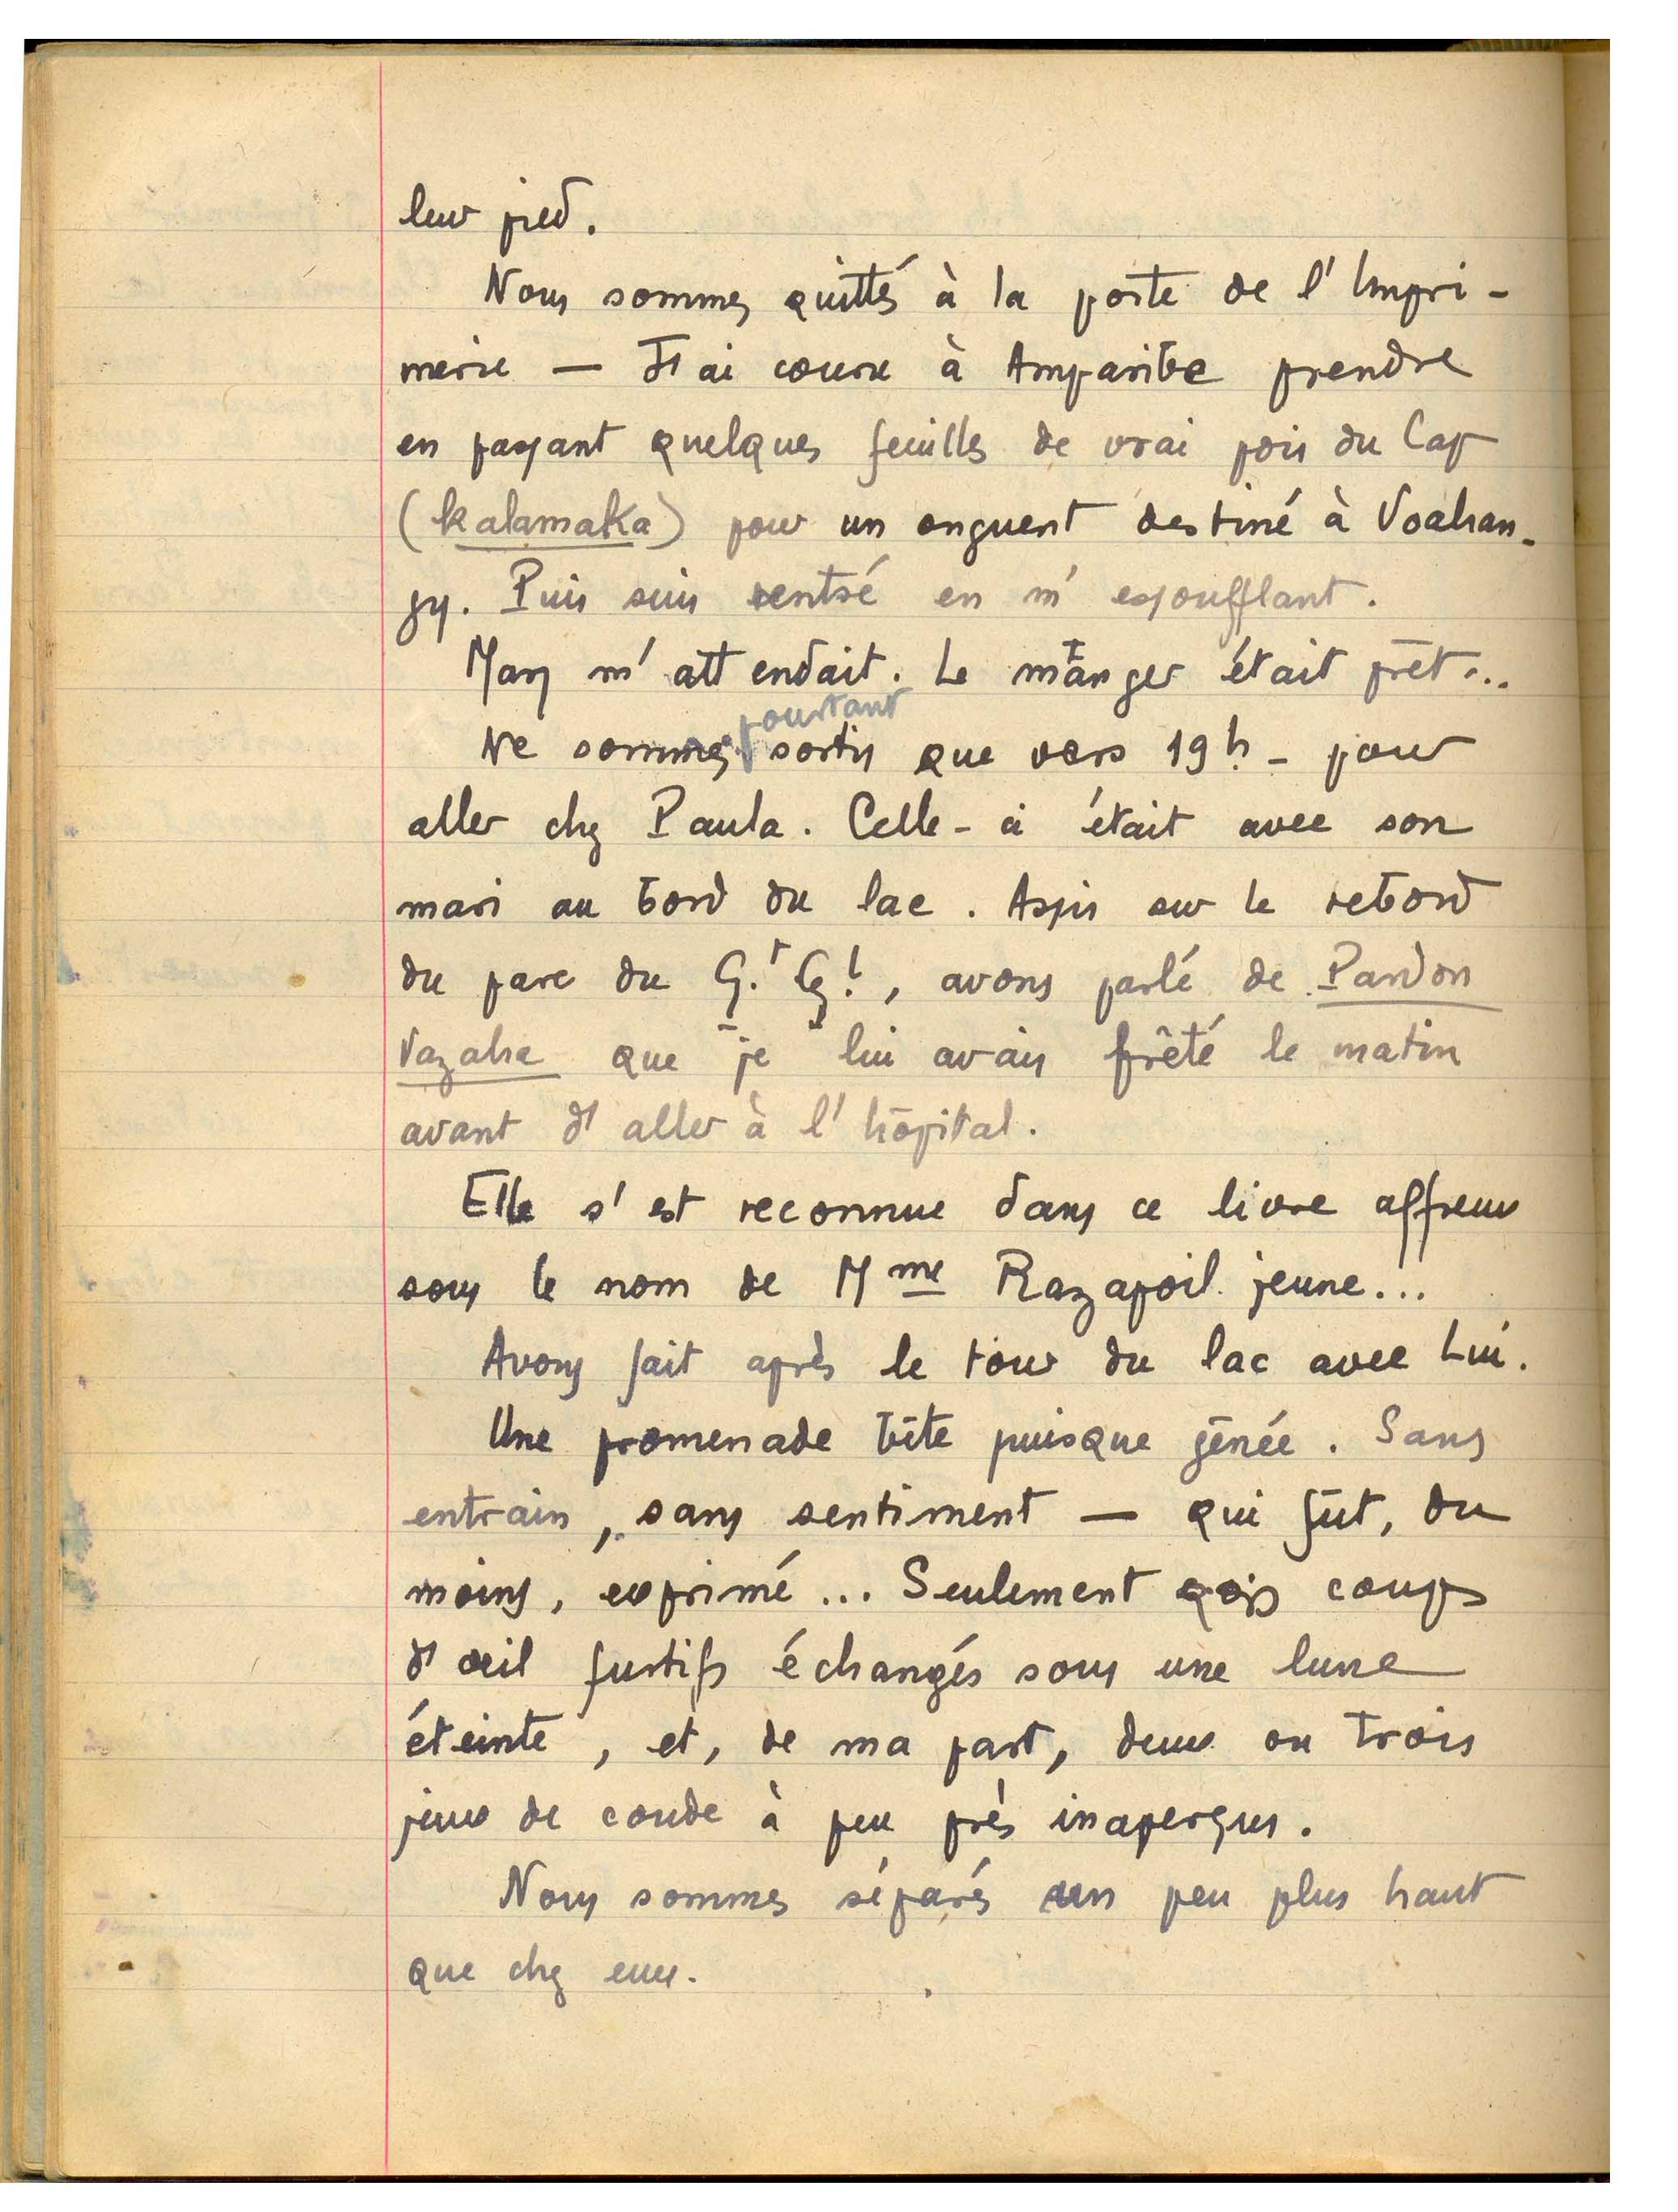 leur pied.
Nous sommes quittés à la porte de l'Impri-
merie — J'ai couru à Amparibe prendre
en passant quelques feuilles de vrai pois du Cap
(kalamaka) pour un onguent destiné à Voahan-
gy. Puis suis rentré en m'essoufflant.
Mary m'attendait. Le manger était prêt...
pourtant
Ne sommes sortis que vers 19h. - pour
aller chez Paula. Celle-ci était avec son
mari au bord du lac. Assis sur le rebord
du parc du G.t G.l, avons parlé de Pardon
Vazaha que je lui avais prêté le matin
avant d'aller à l'hôpital.
Elle s'est reconnue dans ce livre affreux
sous le nom de Mme Razapoil jeune...
Avons fait après le tour du lac avec Lui.
Une promenade bête puisque gênée. Sans
entrain, sans sentiment — qui fût, du
moins, exprimé... Seulement qqs coups
d'œil furtifs échangés sous une lune
éteinte, et, de ma part, deux ou trois
jeux de coude à peu près inaperçus.
Nous sommes séparés un peu plus haut
que chez eux.